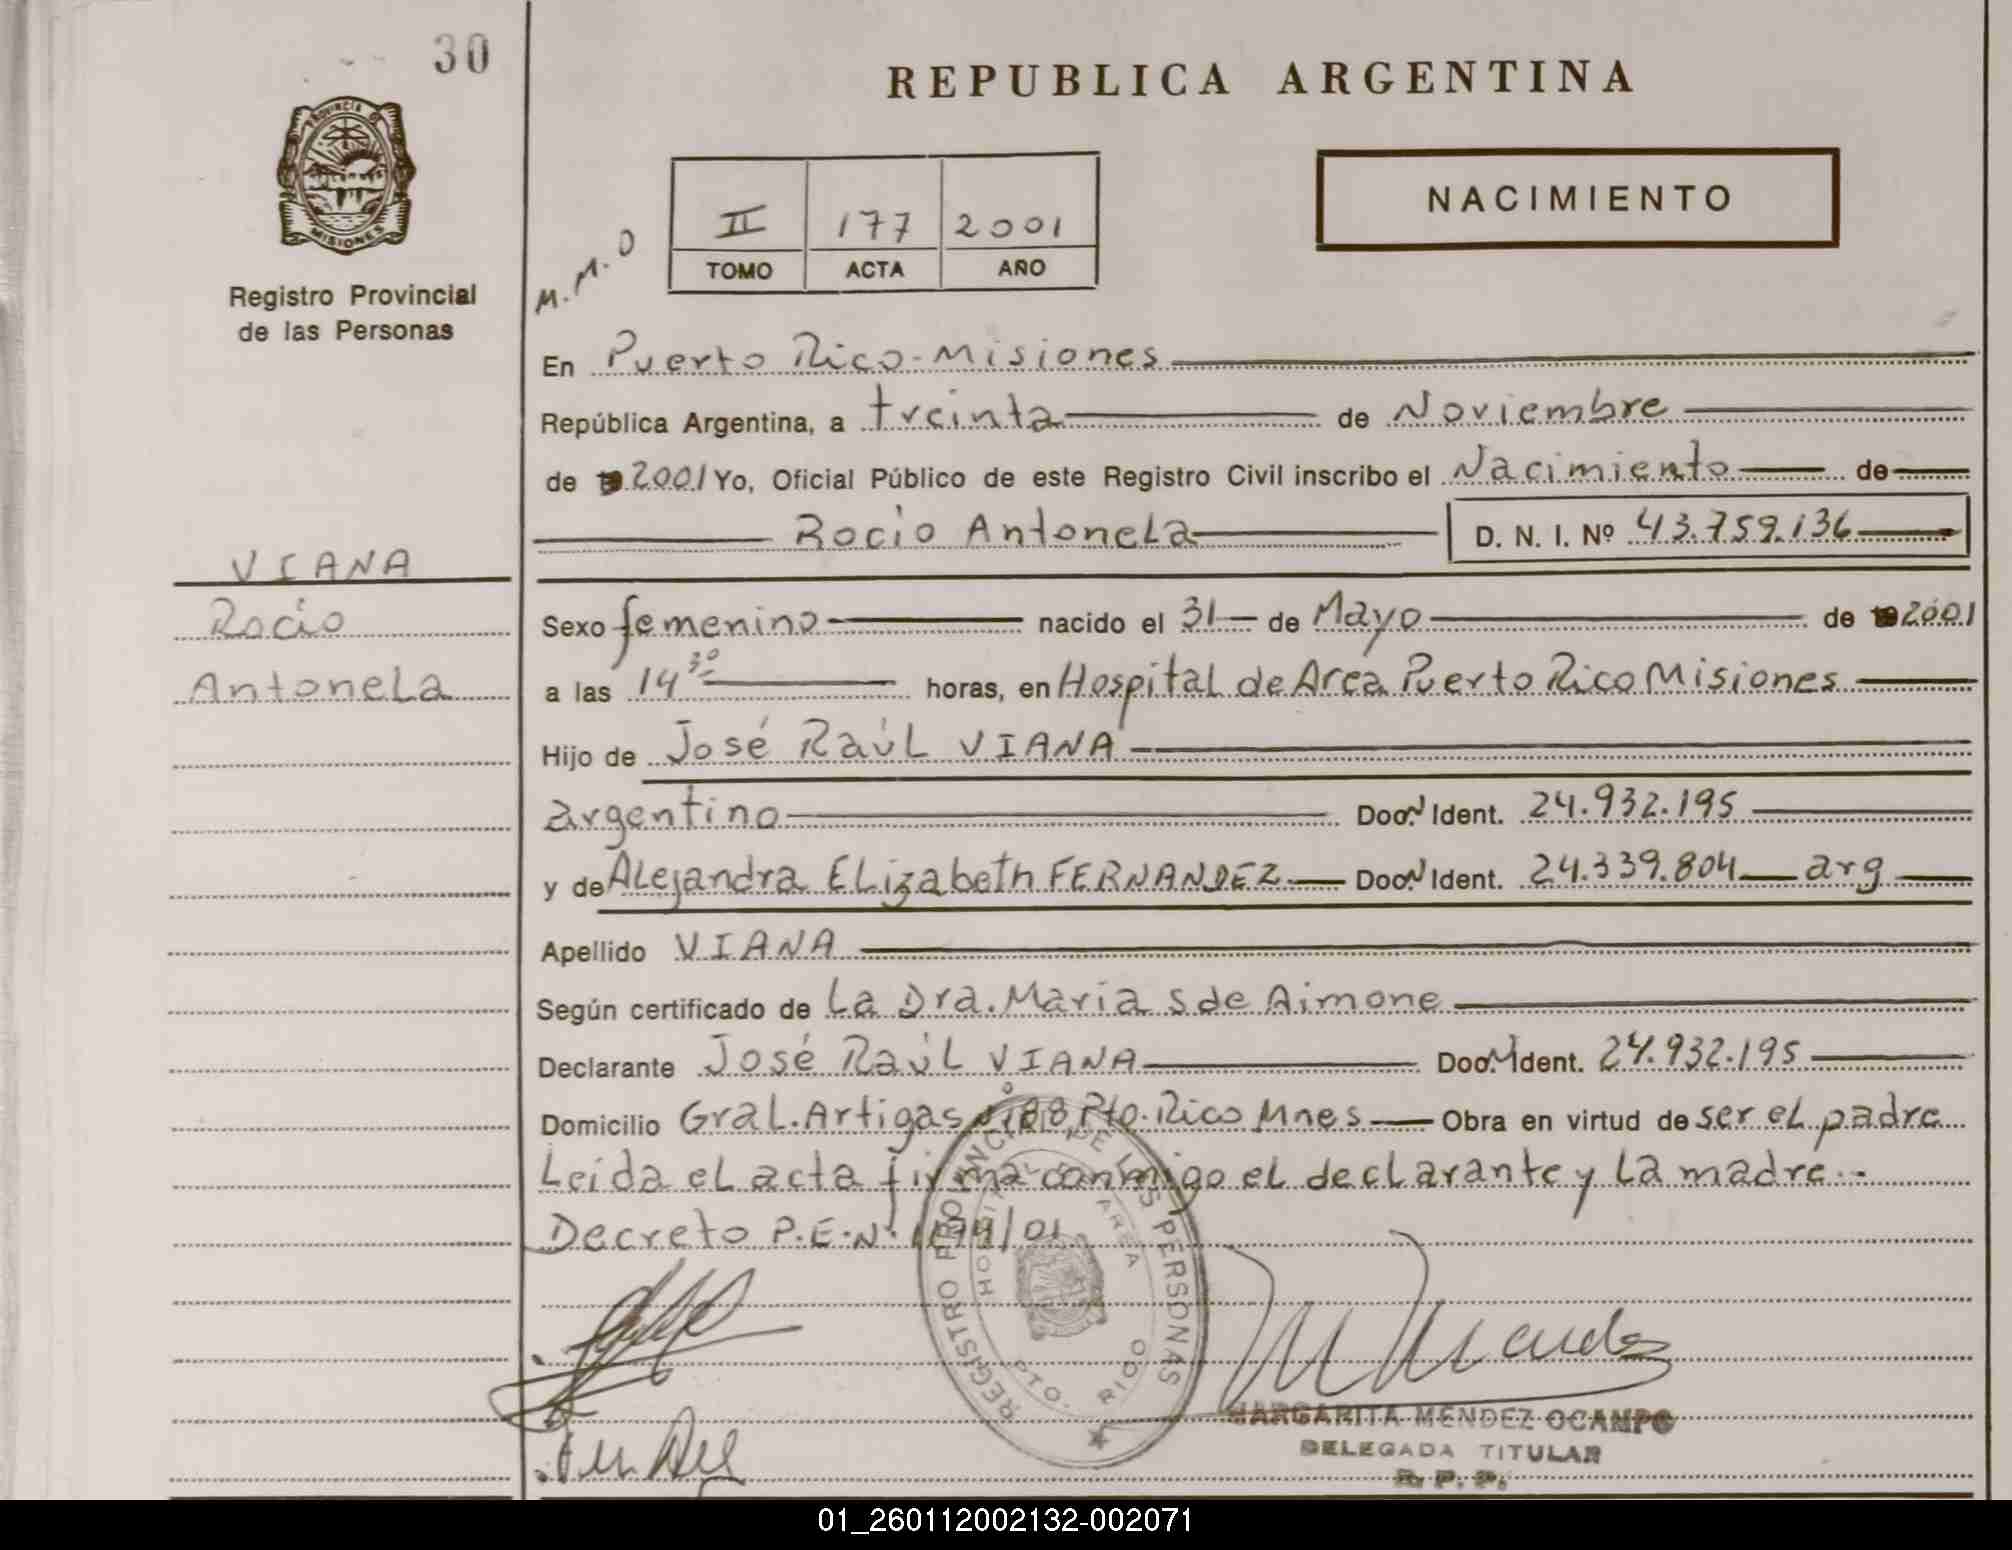 30
REPUBLICA ARGENTINA
PROVINCIA DE
MISIONES
Registro Provincial
de las Personas
NACIMIENTO
II 177 2001
TOMO ACTA AÑO
M. M. O
En Puerto Rico-Misiones
República Argentina, a treinta de Noviembre
de 2001 Yo, Oficial Público de este Registro Civil inscribo el Nacimiento de
Rocio Antonela D. N. I. Nº 43.759.136
VIANA
Rocio
Antonela
Sexo femenino nacido el 31 de Mayo de 2001
a las 14 30 horas, en Hospital de Area Puerto Rico Misiones
Hijo de José Raúl VIANA
argentino Doc. Ident. 24.932.195
y de Alejandra Elizabeth FERNANDEZ Doc. Ident. 24.339.804 arg
Apellido VIANA
Según certificado de La Dra. Maria S de Aimone
Declarante José Raúl VIANA Doc. Ident. 24.932.195
Domicilio Gral. Artigas Pto. Rico Mnes Obra en virtud de ser el padre
Leida el acta firma conmigo el declarante y la madre.-
Decreto P.E.N. /01
REGISTRO PROVINCIAL DE LAS PERSONAS
HOSPITAL AREA
PTO. RICO
MARGARITA MENDEZ OCAMPO
DELEGADA TITULAR
R. P. P.
01_260112002132-002071